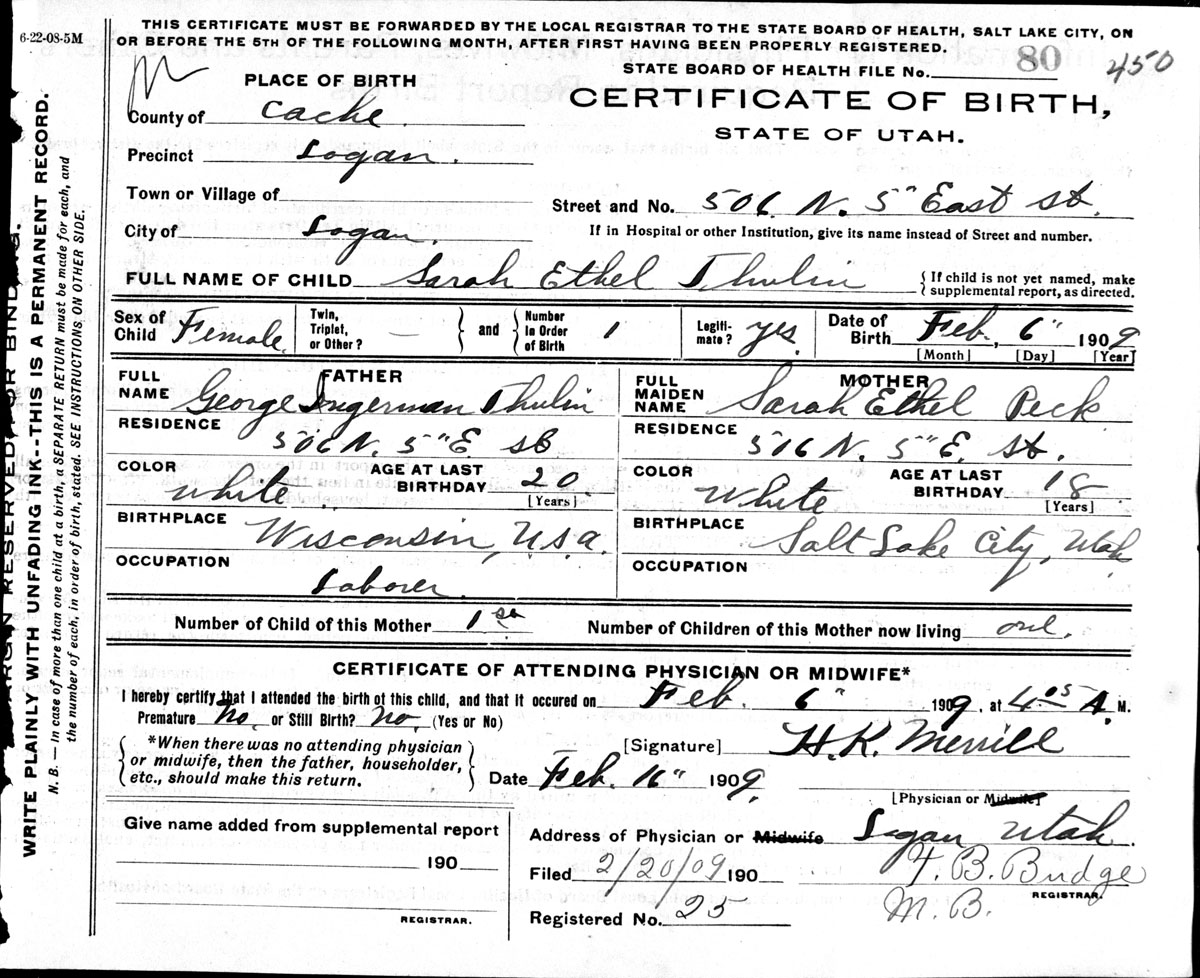 THIS CERTIFICATE MUST BE FORWARDED BY THE LOCAL REGISTRAR TO THE STATE BOARD OF HEALTH, SALT LAKE CITY, ON
6-22-08-5M
OR BEFORE THE 5TH OF THE FOLLOWING MONTH, AFTER FIRST HAVING BEEN PROPERLY REGISTERED.
STATE BOARD OF HEALTH FILE No. 80 450
PLACE OF BIRTH
CERTIFICATE OF BIRTH,
County of Cache
STATE OF UTAH.
Precinct Logan.
Town or Village of
Street and No. 506 N. 5" East St.
City of Logan.
If in Hospital or other Institution, give its name instead of Street and number.
FULL NAME OF CHILD Sarah Ethel Thulin { If child is not yet named, make supplemental report, as directed.
Sex of Child Female. Twin, Triplet, or Other? — } and { Number in Order of Birth 1 Legiti-mate? yes. Date of Birth Feb. 6" 1909
[Month] [Day] [Year]
FATHER
FULL NAME George Ingerman Thulin
RESIDENCE 506 N. 5" E. St
COLOR White AGE AT LAST BIRTHDAY 20 [Years]
BIRTHPLACE Wisconsin, U.S.A.
OCCUPATION Laborer.
MOTHER
FULL MAIDEN NAME Sarah Ethel Peck
RESIDENCE 516 N. 5" E. St.
COLOR White AGE AT LAST BIRTHDAY 18 [Years]
BIRTHPLACE Salt Lake City, Utah
OCCUPATION
Number of Child of this Mother 1st Number of Children of this Mother now living one.
CERTIFICATE OF ATTENDING PHYSICIAN OR MIDWIFE*
I hereby certify that I attended the birth of this child, and that it occured on Feb. 6" 1909, at 4 05 A. M.
Premature No. or Still Birth? No. (Yes or No)
{ *When there was no attending physician or midwife, then the father, householder, etc., should make this return. }
[Signature] H.K. Merrill
Date Feb. 16" 1909.
[Physician or Midwife]
Give name added from supplemental report
190
REGISTRAR.
Address of Physician or Midwife Logan Utah.
Filed 2/20/09 190 F. B. Budge
REGISTRAR.
Registered No. 25 M. B.
MARGIN RESERVED FOR BINDING.
WRITE PLAINLY WITH UNFADING INK--THIS IS A PERMANENT RECORD.
N. B. — In case of more than one child at a birth, a SEPARATE RETURN must be made for each, and
the number of each, in order of birth, stated. SEE INSTRUCTIONS ON OTHER SIDE.